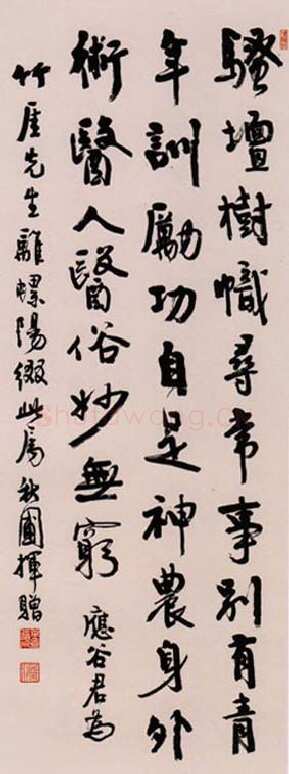 騷壇樹幟尋常事別有青
年訓勵功自是神農身外
術醫人醫俗妙無窮 應谷君為
竹厓先生離螺陽綴此馬秋圃揮贈